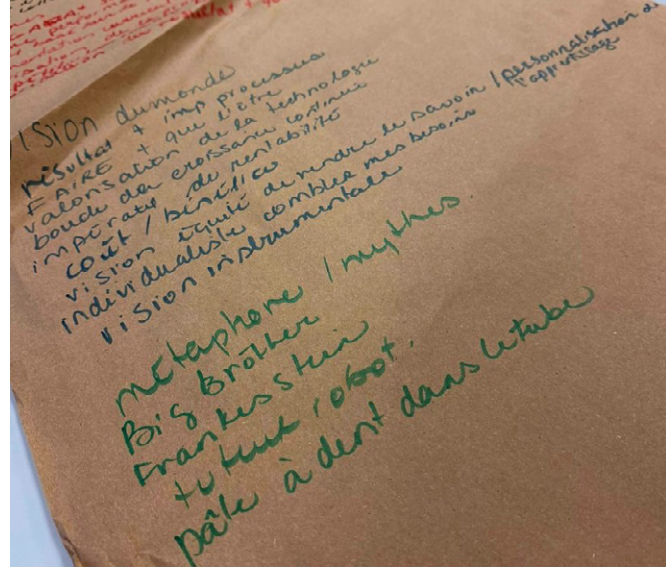 ision du monde
résultat + imp processus
FAIRE + que l'être
valorisation de la technologie
boucle de croissance continue
impératif de rentabilité
coût / bénéfice
vision équité de rendre le savoir / personnalisation de
l'apprentissage
individualiste combler mes besoins
vision instrumentale
métaphore / mythes
Big Brother
Frankestein
tuteur robot.
pâte à dent dans le tube